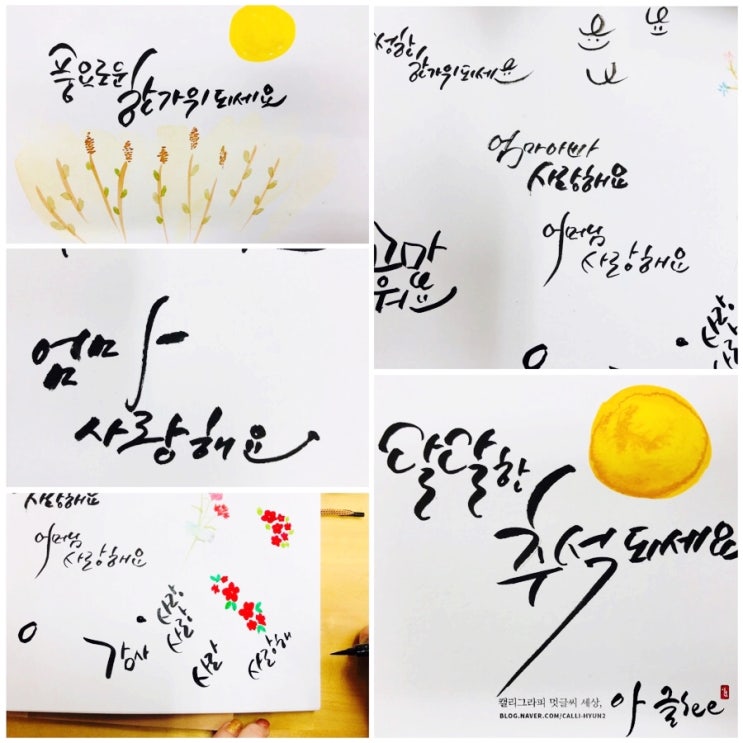 풍요로운
한가위되세요
성한
한가위되세요
엄마아빠
사랑해요
어머님
사랑해요
고마
워요
사랑
엄마
사랑해요
사랑해요
어머님
사랑해요
감사
사랑
사랑
사랑
사랑해
달달한
추석되세요
캘리그라피 멋글씨 세상,
BLOG.NAVER.COM/CALLI-HYUN2
아 글see